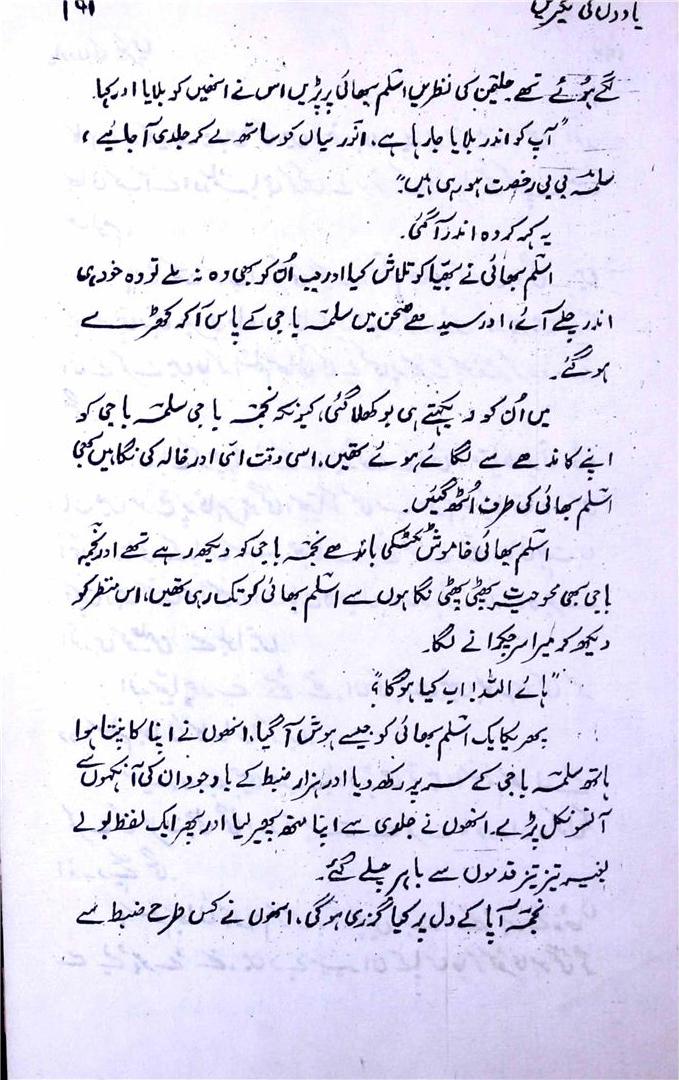 یادوں کی لکیریں
لگے ہوئے تھے جلیقن کی نظریں اسلم بھائی پر پڑیں اس نے انھیں کو بلایا اور کہا۔
"آپ کو اندر بلایا جا رہا ہے، انور میاں کو ساتھ لے کر جلدی آ جائیے،
سلمہٰ بی بی رخصت ہو رہی ہیں۔"
یہ کہہ کر وہ اندر آ گئی۔
اسلم بھائی نے بھیّا کو تلاش کیا اور جب اُن کو بھی وہ نہ ملے تو وہ خود ہی
اندر چلے آئے، اور سیدھے صحن میں سلمہ باجی کے پاس آ کر کھڑے
ہو گئے۔
میں اُن کو دیکھتے ہی بوکھلا گئی، کیونکہ نجمہ باجی سلمہ باجی کو
اپنے کاندھے سے لگائے ہوئے تھیں۔ اسی وقت امّی اور خالہ کی نگاہیں بھی
اسلم بھائی کی طرف اُٹھ گئیں۔
اسلم بھائی خاموش ٹکٹکی باندھے نجمہ باجی کو دیکھ رہے تھے اور نجمہ
باجی بھی محوحیت پھٹی پھٹی نگاہوں سے اسلم بھائی کو تک رہی تھیں، اس منظر کو
دیکھ کر میرا سر چکرانے لگا۔
"ہائے اللہ! اب کیا ہو گا؟"
پھر یکایک اسلم بھائی کو جیسے ہوش آ گیا، انھوں نے اپنا کانپتا ہوا
ہاتھ سلمہ باجی کے سر پر رکھ دیا اور ہزار ضبط کے باوجود ان کی آنکھوں سے
آنسو نکل پڑے۔ انھوں نے جلدی سے اپنا منھ پھیر لیا اور پھر ایک لفظ بولے
بغیر تیز تیز قدموں سے باہر چلے گئے۔
نجمہ آپا کے دل پر کیا گزری ہو گی، انھوں نے کس طرح ضبط سے